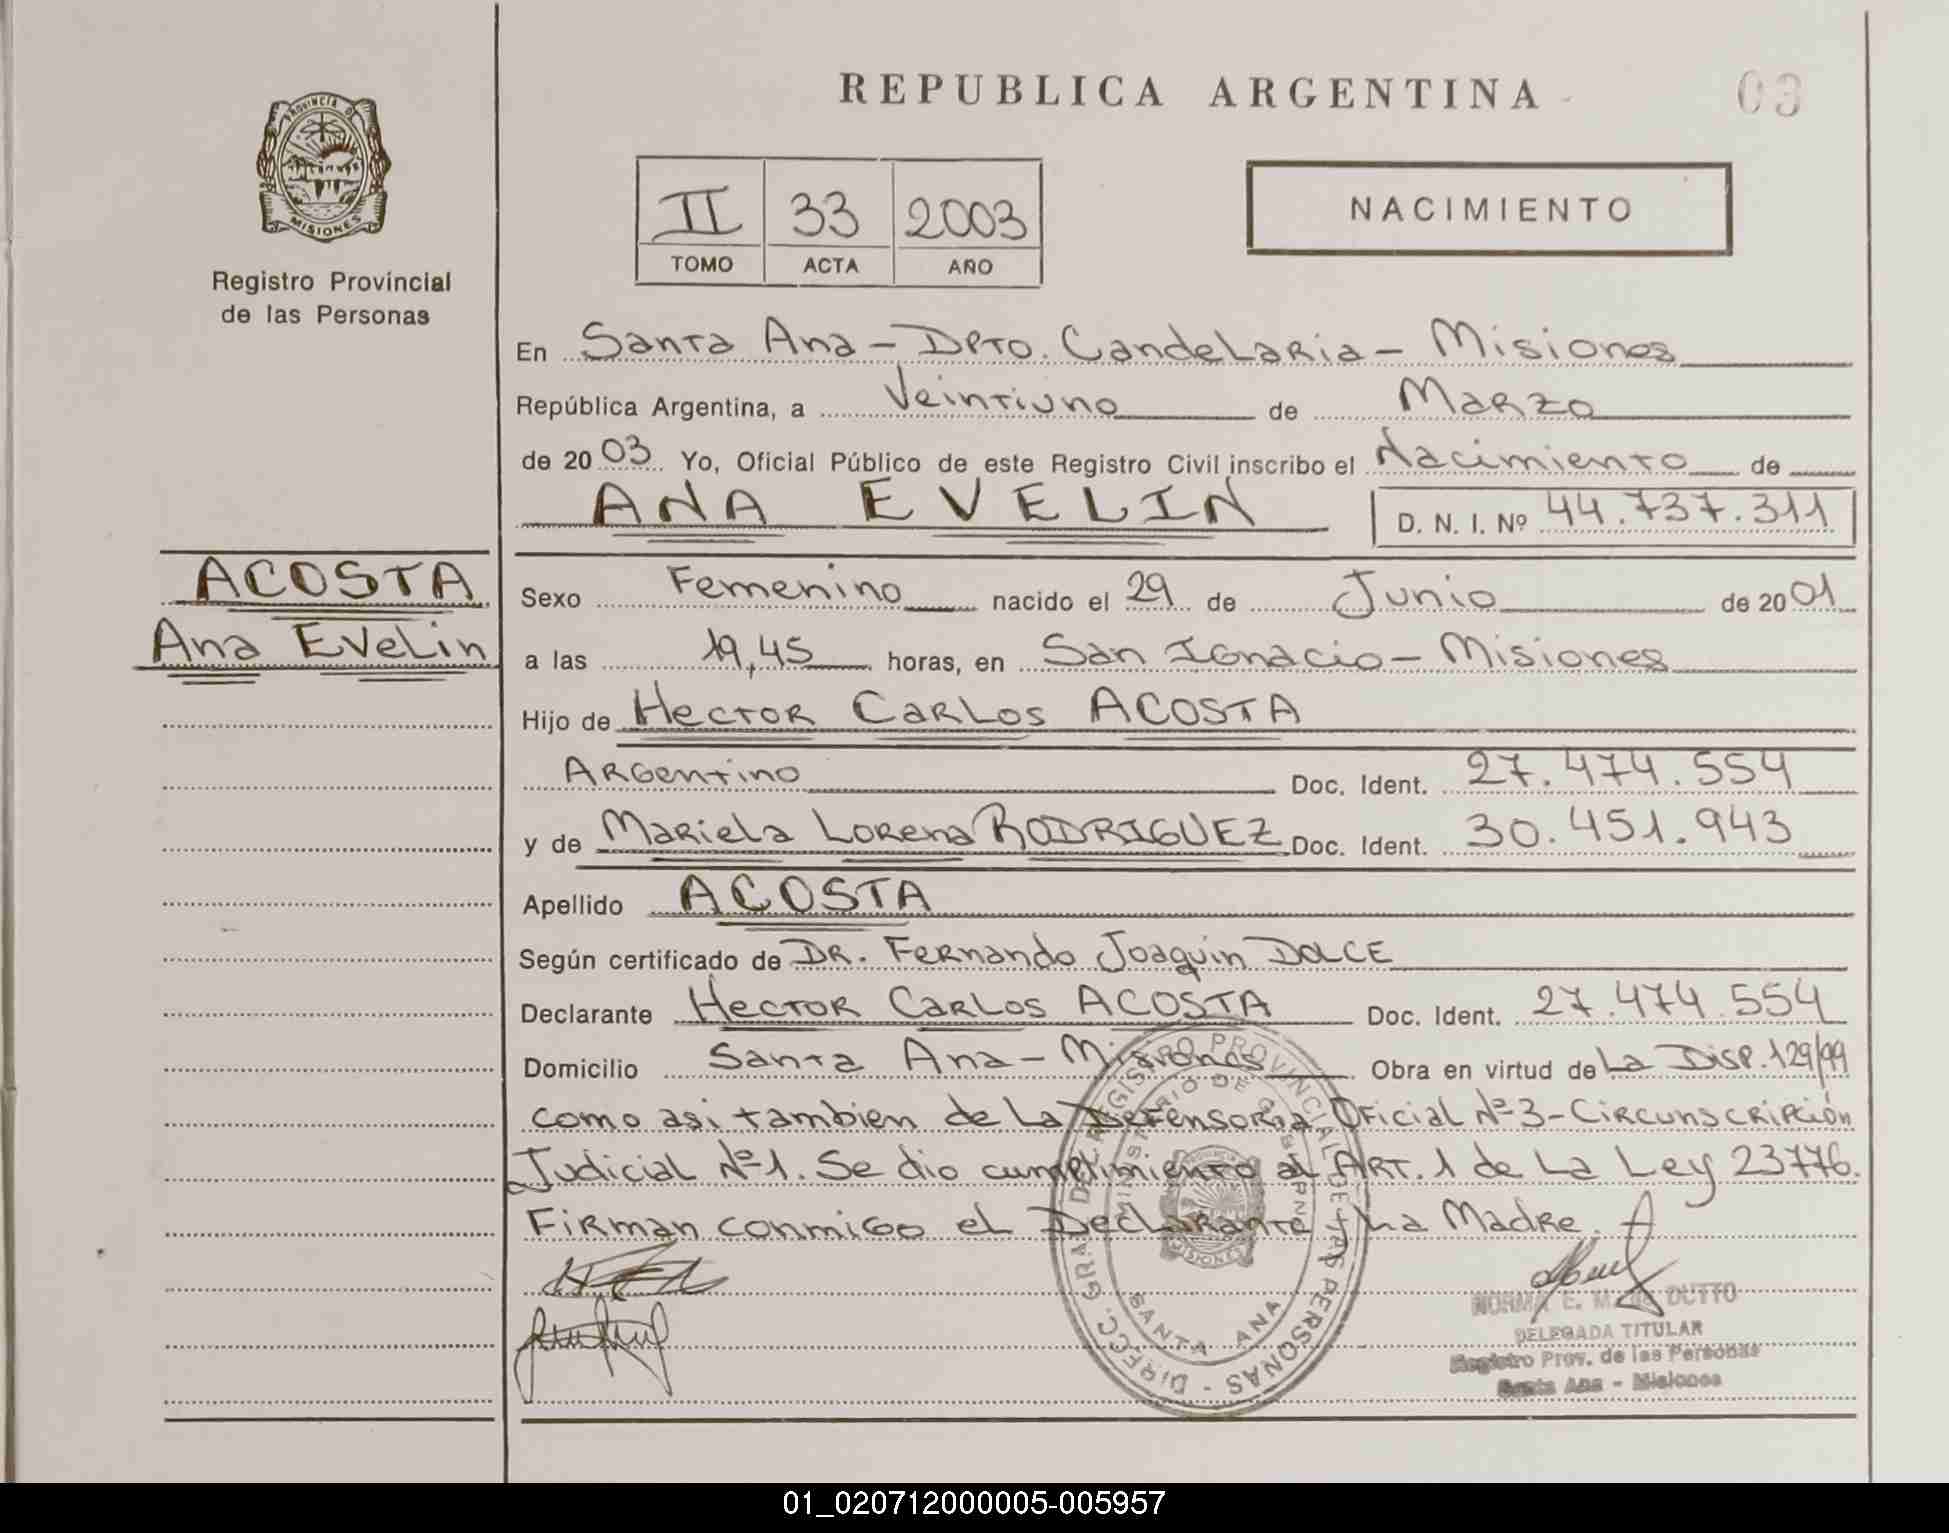 REPUBLICA ARGENTINA
03
PROVINCIA DE
MISIONES
Registro Provincial
de las Personas
II 33 2003
TOMO ACTA AÑO
NACIMIENTO
En Santa Ana - Dpto. Candelaria - Misiones
República Argentina, a Veintiuno de Marzo
de 2003 Yo, Oficial Público de este Registro Civil inscribo el Nacimiento de
ANA EVELIN D. N. I. Nº 44.737.311
ACOSTA
Ana Evelin
Sexo Femenino nacido el 29 de Junio de 2001
a las 19,45 horas, en San Ignacio - Misiones
Hijo de Hector Carlos ACOSTA
Argentino Doc. Ident. 27.474.554
y de Mariela Lorena RODRIGUEZ Doc. Ident. 30.451.943
Apellido ACOSTA
Según certificado de DR. Fernando Joaquin DOLCE
Declarante Hector Carlos ACOSTA Doc. Ident. 27.474.554
Domicilio Santa Ana - Misiones Obra en virtud de La Disp. 129/99
como asi tambien de La Defensoria Oficial Nº 3 - Circunscripción
Judicial Nº 1. Se dio cumplimiento al ART. 1 de La Ley 23776.
Firman conmigo el Declarante y La Madre.
DIRECC. GRAL DEL REGISTRO PROVINCIAL DE LAS PERSONAS -
MINISTERIO DE GOBIERNO
SANTA ANA
NORMA E. M. de DUTTO
DELEGADA TITULAR
Registro Prov. de las Personas
Santa Ana - Misiones
01_020712000005-005957